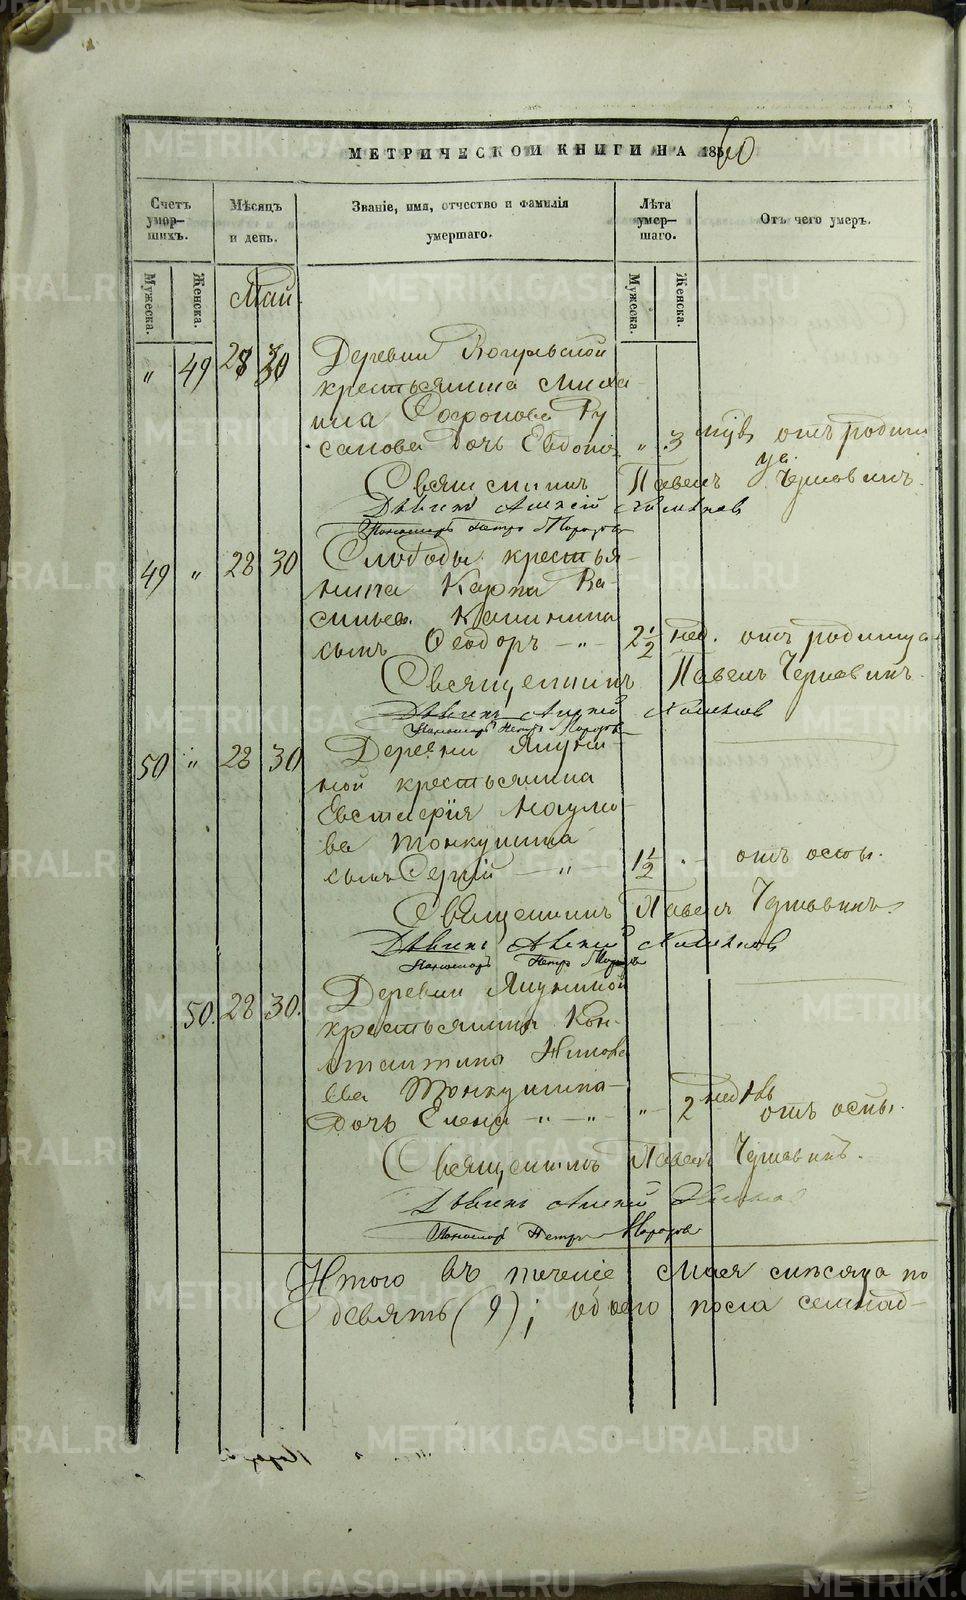 МЕТРИЧЕСКОЙ КНИГИ НА 1860
Счетъ умер- шихъ.
Мѣсяцъ и день.
Званіе, имя, отчество и фамилія умершаго.
Лѣта умер- шаго.
Отъ чего умеръ.
Мужеска. Женска.
Мужеска. Женска.
Май
„ 49 28 30 Деревни
крестьянина Миха
ила Софронова Ру
санова дочь Евдокія „ 3 отъ родим
ца.
Священникъ Павелъ
Дьячекъ Алексѣй
Пономарь Петръ Морозовъ
49 „ 28 30 Слободы крестья
нина Карпа Ва
сильев. Калинина
сынъ Ѳеодоръ — „ — 2 1/2 нед. отъ родимца
Священникъ Павелъ
Дьячекъ Алексѣй
Пономарь Петръ Морозовъ
50 „ 28 30 Деревни Ялуни-
ной крестьянина
Евстафія Наумо-
ва Тонкушина
сынъ Сергій — „ 1 1/2 отъ оспы.
Священникъ Павелъ
Дьячекъ Алексѣй
Пономарь Петръ Морозовъ
50. 28 30. Деревни Ялуниной
крестьянина Кон-
стантина
ева Тонкушина
дочь Елена — „ — „ — „ — 2 отъ оспы.
Священникъ Павелъ
Дьячекъ Алексѣй
Пономарь Петръ Морозовъ
Итого въ теченіе Мая мѣсяца по
девять (9); обоего пола семнад-
METRIKI.GASO-URAL.RU